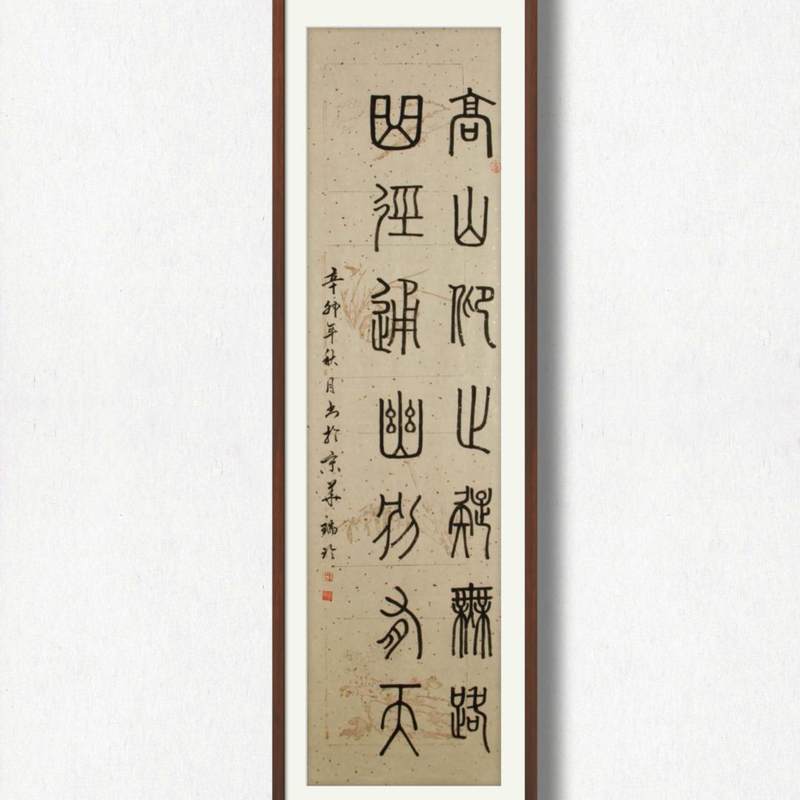 高山仰止疑無路
曲徑通幽別有天
辛卯年秋月书於京華瑞